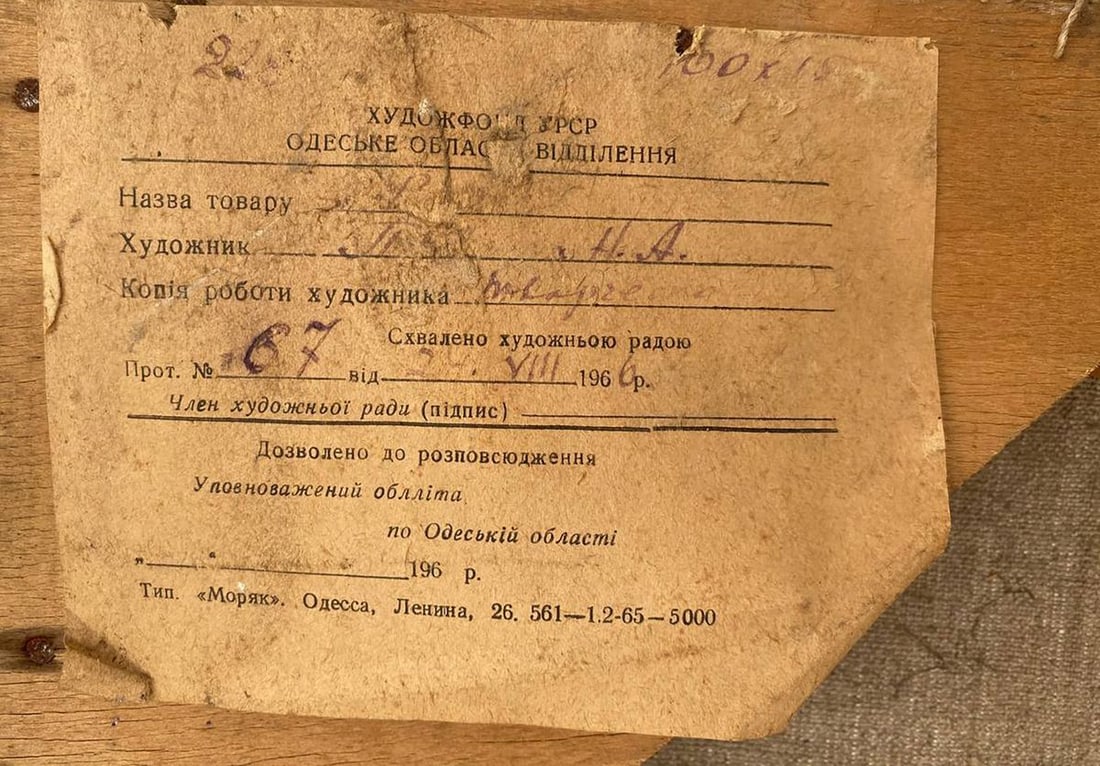 ХУДОЖФОНД УРСР
ОДЕСЬКЕ ОБЛАС ВІДДІЛЕННЯ
Назва товару
Художник Н. А.
Копія роботи художника
Схвалено художньою радою
Прот. № 67 від 24. VIII 1966 р.
Член художньої ради (підпис)
Дозволено до розповсюдження
Уповноважений облліта
по Одеській області
„ “ 196 р.
Тип. «Моряк». Одесса, Ленина, 26. 561—1.2-65—5000